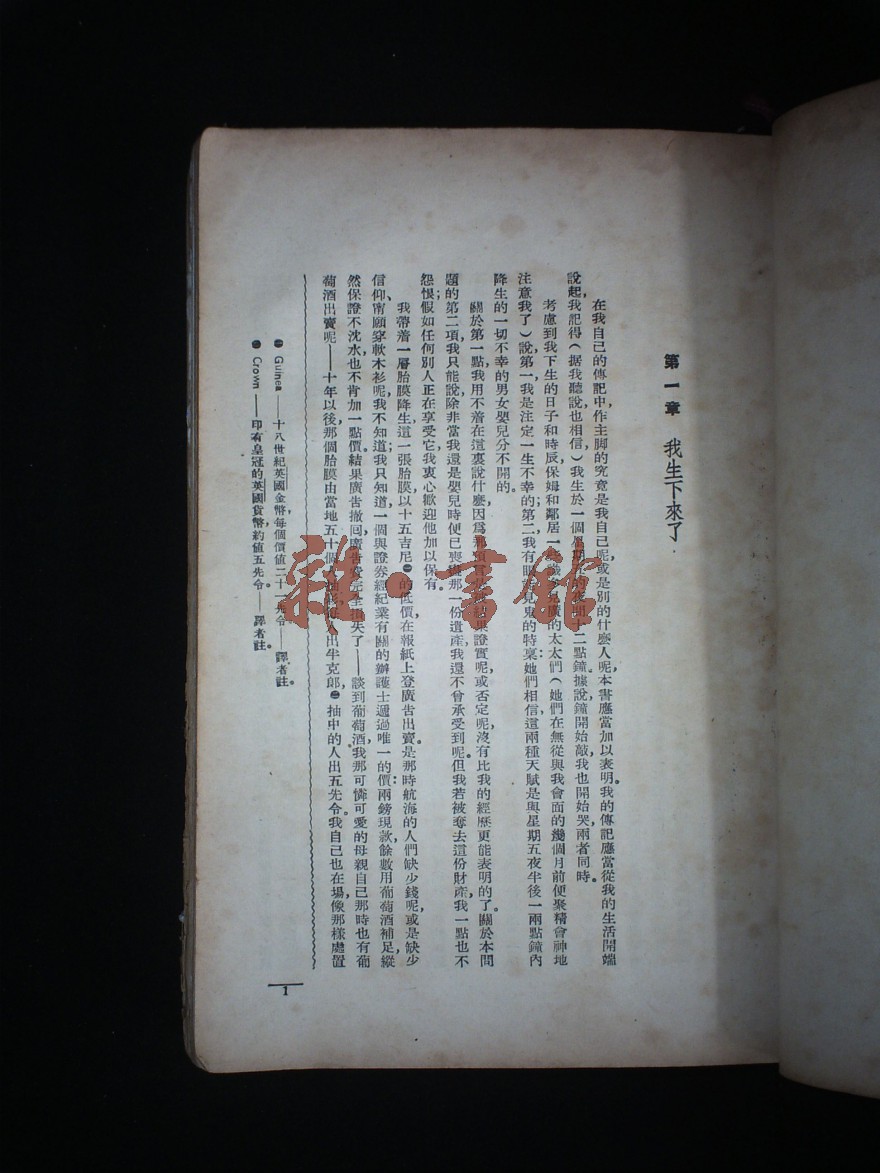 第一章　我生下來了
在我自己的傳記中作主脚的究竟是我自己呢，或是別的什麽人呢，本書應當加以表明。我的傳記應當從我的生活開端
說起，我記得（据我聽說也相信）我生於一個夜間十二點鐘。據說鐘開始敲，我也開始哭，兩者同時。
考慮到我下生的日子和時辰，保姆和鄰居一太太們（她們在無從與我會面的幾個月前便聚精會神地
注意我了）說，第一，我是注定一生不幸的；第二，我有的特稟；她們相信這兩種天賦是與星期五夜半後一兩點鐘內
降生的一切不幸的男女嬰兒分不開的。
關於第一點，我用不着在這裏說什麽，因爲結果證實呢，或否定呢，沒有比我的經歷更能表明的了。關於本問
題的第二項，我只能說，除非當我還是嬰兒時便已那一份遺產，我還不曾承受到呢。但我若被奪去這份財產，我一點也不
怨恨；假如任何別人正在享受它，我衷心歡迎他加以保有。
我帶着一層胎膜降生，這一張胎膜以十五吉尼㊀的低價在報紙上登廣吿出賣。是那時航海的人們缺少錢呢，或是缺少
信仰、甯願穿軟木衫呢，我不知道；我只知道，一個與證券經紀業有關的辦護士遞過唯一的價：兩鎊現款，餘數用葡萄酒補足，縱
然保證不沈水也不肯加一點價。結果廣吿撤囘，廣吿費完全損失了——談到葡萄酒，我那可憐可愛的母親自己那時也有葡
萄酒出賣呢——十年以後，那個胎膜由當地五十個人出半克郎，㊁抽中的人出五先令。我自己也在場，像那樣處置
㊀ Guinea——十八世紀英國金幣，每個價值二十一先令。——譯者註。
㊁ Crown——印有皇冠的英國貨幣，約値五先令。——譯者註。
1
雜·書館